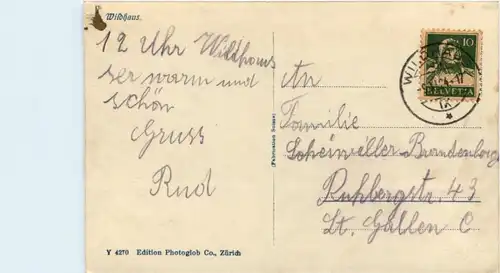 Wildhaus.
12 Uhr Wildhaus
ser warm und
schön
Gruss
Rud
Y 4270 Edition Photoglob Co., Zürich
(Fabrication Suisse)
10
HELVETIA
An
Familie
Scheiwiller-Brandenberg
Ruhbergstr. 43
St. Gallen C